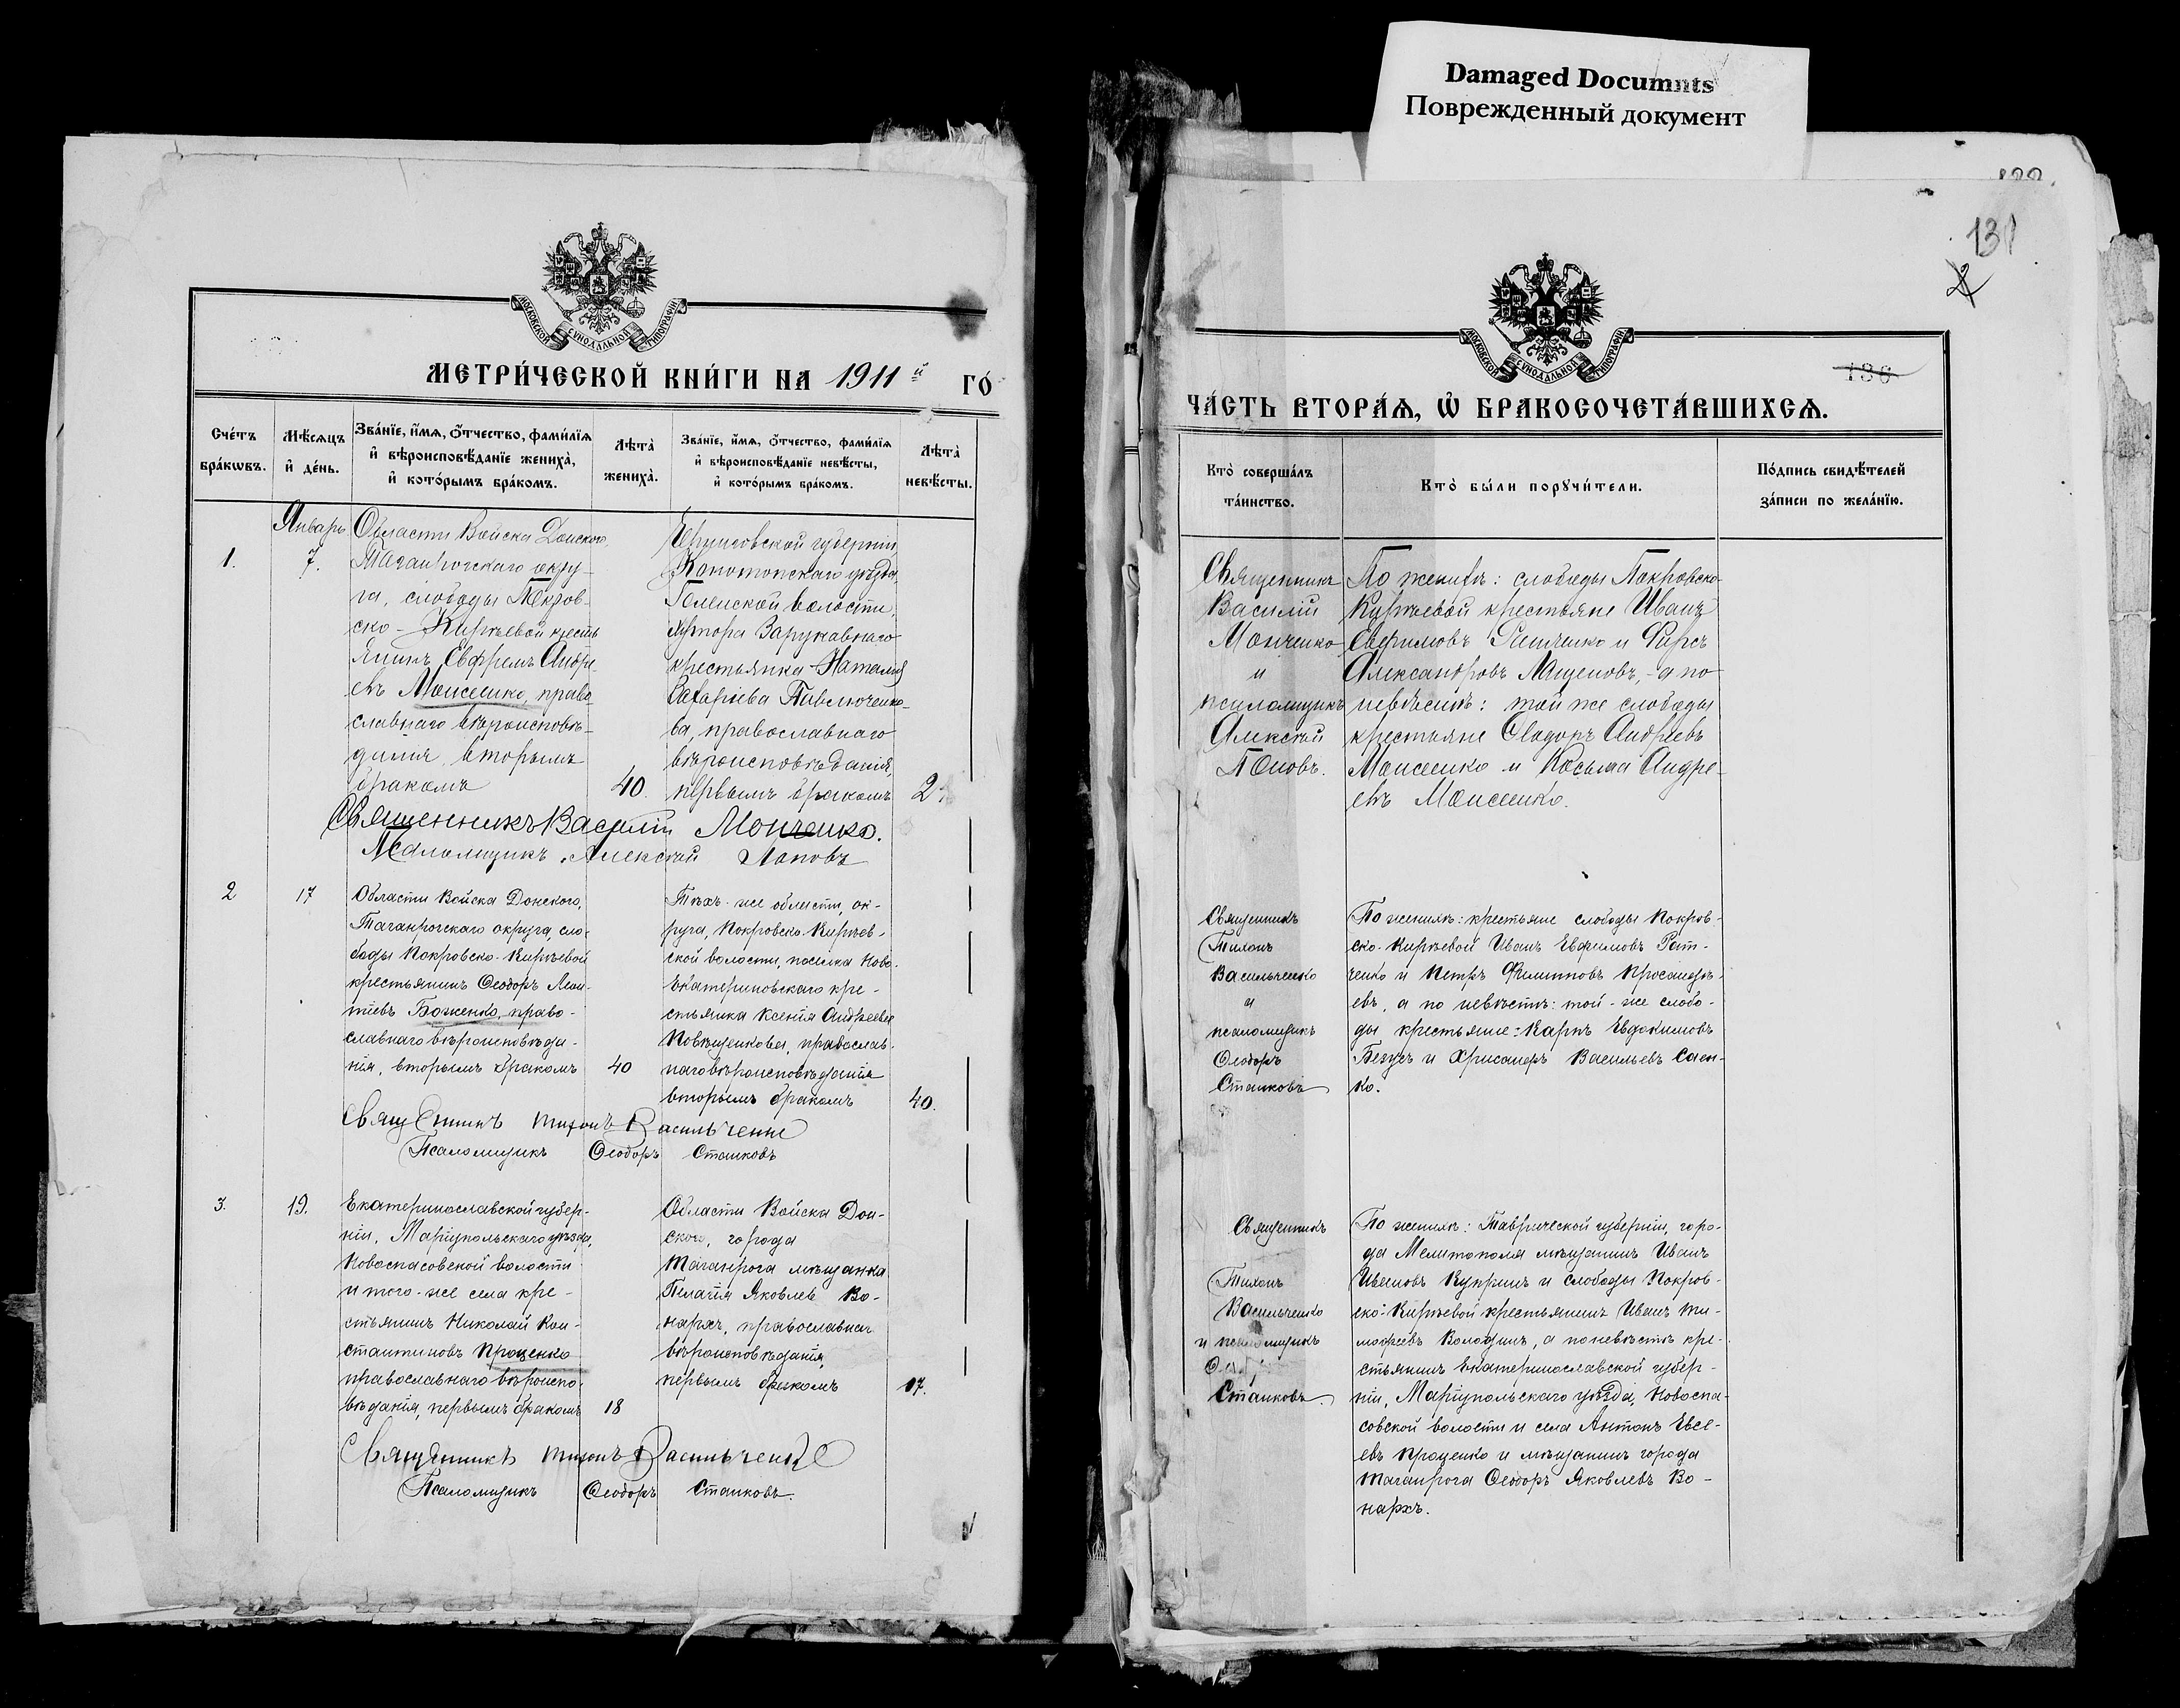 Damaged Documnts
Поврежденный документ
131
2
136
МОСКОВСКОЙ СУНОДАЛЬНОЙ ТИПОГРАФІИ
МЕТРИ́ЧЕСКОЙ КНИ́ГИ НА 1911й ГО́
Сче́тъ бра́кѡвъ.
Мѣ́сяцъ и҆ де́нь.
Зва́нїе, и҆́мѧ, ѻ҆́тчество, фами́лїѧ и҆ вѣроисповѣ́данїе жениха̀, и҆ кото́рымъ бра́комъ.
Лѣта̀ жениха̀.
Зва́нїе, и҆́мѧ, ѻ҆́тчество, фами́лїѧ и҆ вѣроисповѣ́данїе невѣ́сты, и҆ кото́рымъ бра́комъ.
Лѣта̀ невѣ́сты.
1.
Январь
7.
Области Войска Донского,
Таганрогскаго окру-
га, слободы Покров-
ско-Кирѣевой кресть
янинъ Ефремъ Андре
евъ Моисеенко, право
славнаго вѣроисповѣ-
данія, вторымъ
бракомъ
40.
Черниговской губерніи,
Конотопскаго уѣзда,
волости,
хутора Зарукавнаго
крестьянка Наталія
Захаріева Павлюченко-
ва, православнаго
вѣроисповѣданія,
первымъ бракомъ
Священникъ Василій Монченко.
Псаломщикъ Алексѣй Поповъ
2
17
Области Войска Донского,
Таганрогскаго округа, сло-
боды Покровско-Кирѣевой
крестьянинъ Ѳеодоръ Леон-
тіевъ Боженко, право-
славнаго вѣроисповѣда-
нія, вторымъ бракомъ
40
Тѣхъ-же области, ок-
руга, Покровско-Кирѣев-
ской волости, поселка Ново-
Екатериновскаго кре-
стьянка Ксенія Андреева
православ-
наго вѣроисповѣданія
вторымъ бракомъ
40.
Священникъ Тихонъ Васильченко
Псаломщикъ Ѳеодоръ Станковъ
3.
19.
Екатеринославской губер-
ніи, Маріупольскаго уѣзда,
Новоспасовской волости
и того-же села кре-
стьянинъ Николай Кон-
стантиновъ Проценко
православнаго вѣроиспо-
вѣданія, первымъ бракомъ
18
Области Войска Дон-
ского, города
Таганрога мѣщанка
Пелагія Яковлева Бо-
нархъ, православнаг
вѣроисповѣданія,
первымъ бракомъ
17.
Священникъ Тихонъ Васильченко
Псаломщикъ Ѳеодоръ Станковъ.
МОСКОВСКОЙ СУНОДАЛЬНОЙ ТИПОГРАФІИ
ЧА́СТЬ ВТОРА́Ѧ, Ѡ҆ БРАКОСОЧЕТА́ВШИХСѦ.
Кто̀ соверша́лъ та́инство.
Кто̀ бы́ли порꙋчи́тели.
По́дпись свидѣ́телей за́писи по жела́нїю.
Священникъ
Василій
Монченко
и
псаломщикъ
Алексѣй
Поповъ.
По женихѣ: слободы Покровско-
Кирѣевой крестьяне Иванъ
Евфимовъ Ратченко и Фирсъ
Александровъ Ященовъ, - а по
невѣстѣ: той же слободы
крестьяне Ѳеодоръ Андреевъ
Моисеенко и Косьма Андре-
евъ Моисеенко.
Священникъ
Тихонъ
Васильченко
и
псаломщикъ
Ѳеодоръ
Станковъ
По женихѣ: крестьяне слободы Покров-
ско-Кирѣевой Иванъ Евфимовъ Рат-
ченко и Петръ Филипповъ
а по невѣстѣ: той-же слобо-
ды крестьяне: Карпъ Евдокимовъ
Безусъ и Хрисанфъ Васильевъ Саен-
ко.
Священникъ
Тихонъ
Васильченко
и псаломщикъ
Станковъ.
По женихѣ: Таврической губерніи, горо-
да Мелитополя мѣщанинъ Иванъ
Ивановъ Купринъ и слободы Покров-
ско-Кирѣевой крестьянинъ Иванъ Ти-
мофеевъ Володинъ, а по невѣстѣ кре-
стьянинъ Екатеринославской губер-
ніи, Маріупольскаго уѣзда, Новоспа-
совской волости и села Антонъ Евсе-
евъ Проценко и мѣщанинъ города
Таганрога Ѳеодоръ Яковлевъ Бо-
нархъ.